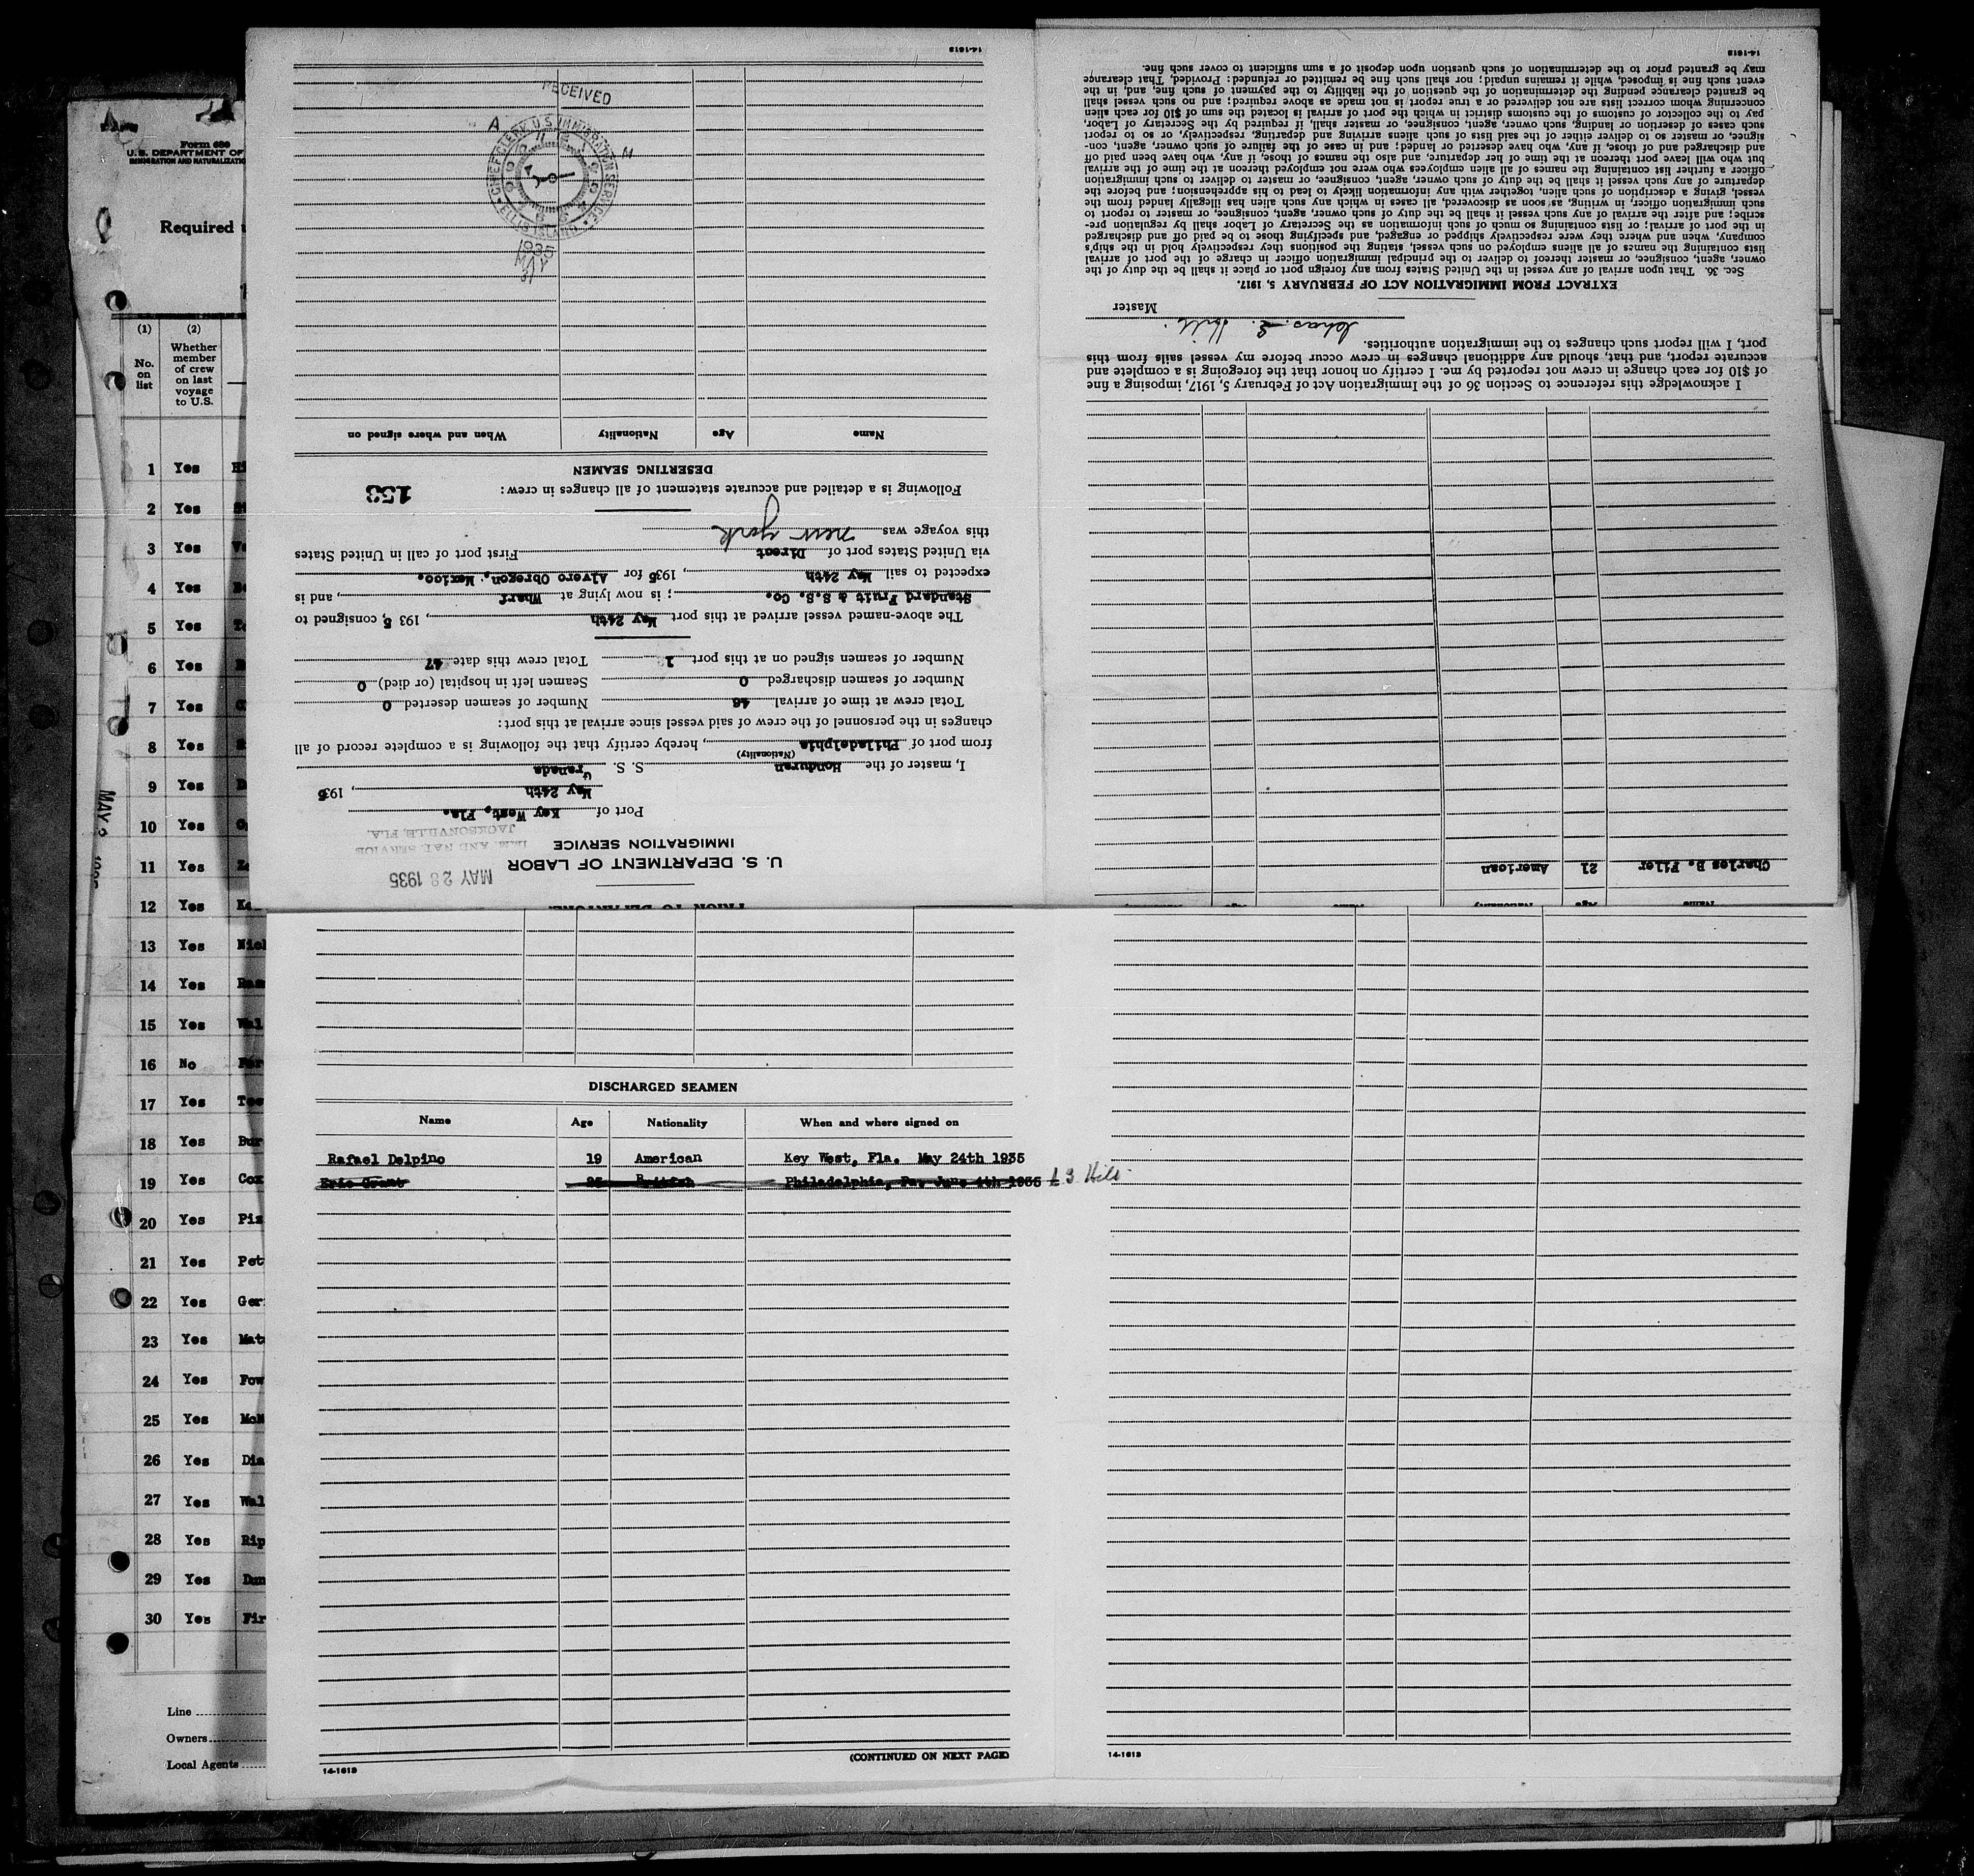 Form 680
U. S. DEPARTMENT OF
IMMIGRATION AND NATURALIZATIO
Required
(1) (2)
No. on list
Whether member of crew on last voyage to U.S.
1 Yes
2 Yes
3 Yes
4 Yes
5 Yes
6 Yes
7 Yes
8 Yes
9 Yes
10 Yes
11 Yes
12 Yes
13 Yes Nic
14 Yes
15 Yes
16 No
17 Yes
18 Yes Bur
19 Yes Cox
20 Yes Pis
21 Yes Pet
22 Yes Ger
23 Yes Mat
24 Yes Fow
25 Yes McN
26 Yes Dia
27 Yes Wal
28 Yes Rip
29 Yes Dun
30 Yes Fir
Line
Owners
Local Agents
PRIOR TO DEPARTURE.
MAY 28 1935
U. S. DEPARTMENT OF LABOR
IMMIGRATION SERVICE
IMM. AND NAT. SERVICE
JACKSONVILLE, FLA.
Port of Key West, Fla.
May 24th, 1935
I, master of the Honduran S. S. Granada
(Nationality)
from port of Philadelphia, hereby certify that the following is a complete record of all
changes in the personnel of the crew of said vessel since arrival at this port:
Total crew at time of arrival 46 Number of seamen deserted 0
Number of seamen discharged 0 Seamen left in hospital (or died) 0
Number of seamen signed on at this port 1 Total crew this date 47
The above-named vessel arrived at this port May 24th, 1935 consigned to
Standard Fruit & S.S. Co.; is now lying at Wharf, and is
expected to sail May 24th, 1935 for Alvero Obregon, Mexico.
via United States port of Direct First port of call in United States
this voyage was New York
Following is a detailed and accurate statement of all changes in crew:
153
DESERTING SEAMEN
Name Age Nationality When and where signed on
RECEIVED
A M
CHIEF CLERK U. S. IMMIGRATION SERVICE
ELLIS ISLAND
1935
MAY
31
14-1613
Name Age Nationality Name Age
Charles B. Filer 21 American
I acknowledge this reference to Section 36 of the Immigration Act of February 5, 1917, imposing a fine
of $10 for each change in crew not reported by me. I certify on honor that the foregoing is a complete and
accurate report, and that, should any additional changes in crew occur before my vessel sails from this
port, I will report such changes to the immigration authorities.
Chas. E. Hill
Master
EXTRACT FROM IMMIGRATION ACT OF FEBRUARY 5, 1917.
Sec. 36. That upon arrival of any vessel in the United States from any foreign port or place it shall be the duty of the
owner, agent, consignee, or master thereof to deliver to the principal immigration officer in charge of the port of arrival
lists containing the names of all aliens employed on such vessel, stating the positions they respectively hold in the ship's
company, when and where they were respectively shipped or engaged, and specifying those to be paid off and discharged
in the port of arrival; or lists containing so much of such information as the Secretary of Labor shall by regulation pre-
scribe; and after the arrival of any such vessel it shall be the duty of such owner, agent, consignee, or master to report to
such immigration officer, in writing, as soon as discovered, all cases in which any such alien has illegally landed from the
vessel, giving a description of such alien, together with any information likely to lead to his apprehension; and before the
departure of any such vessel it shall be the duty of such owner, agent, consignee, or master to deliver to such immigration
officer a further list containing the names of all alien employees who were not employed thereon at the time of the arrival
but who will leave port thereon at the time of her departure, and also the names of those, if any, who have been paid off
and discharged and of those, if any, who have deserted or landed; and in case of the failure of such owner, agent, con-
signee, or master so to deliver either of the said lists of such aliens arriving and departing, respectively, or so to report
such cases of desertion or landing, such owner, agent, consignee, or master shall, if required by the Secretary of Labor,
pay to the collector of customs of the customs district in which the port of arrival is located the sum of $10 for each alien
concerning whom correct lists are not delivered or a true report is not made as above required; and no such vessel shall
be granted clearance pending the determination of the question of the liability to the payment of such fine, and, in the
event such fine is imposed, while it remains unpaid; nor shall such fine be remitted or refunded: Provided, That clearance
may be granted prior to the determination of such question upon deposit of a sum sufficient to cover such fine.
14-1613
DISCHARGED SEAMEN
Name Age Nationality When and where signed on
Rafael Delpino 19 American Key West, Fla. May 24th 1935
Eric Grant 25 British Philadelphia, Pa. June 4th 1935
(CONTINUED ON NEXT PAGE)
14-1613
14-1613